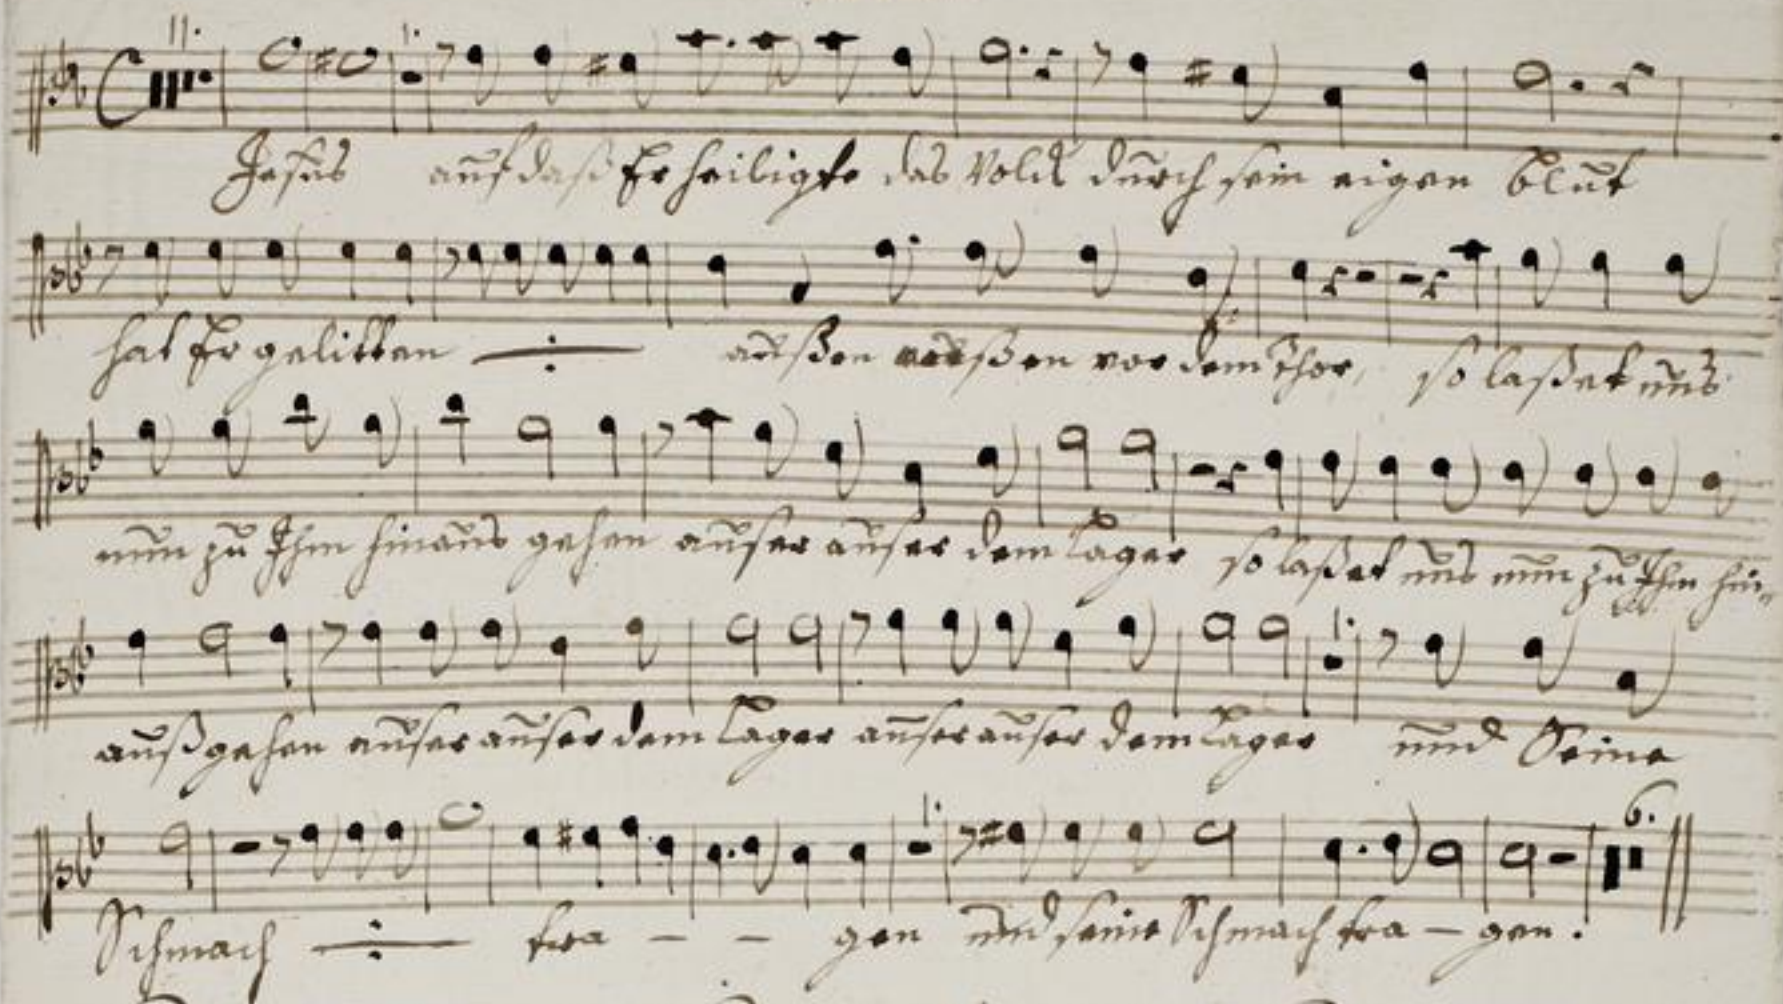 11.
1.
Jesus auf daß Er heiligte das Volck durch sein eigen blut
hat Er gelitten ÷ außen außen vor dem Thor, so laßet uns
nun zu Ihm hinaus gehen außer außer dem Lager so laßet uns nun zu Ihm hin=
1.
auß gehen außer außer dem Lager außer außer dem Lager und Seine
1. 6.
Schmach ÷ tra – – gen und seine Schmach tra – gen.